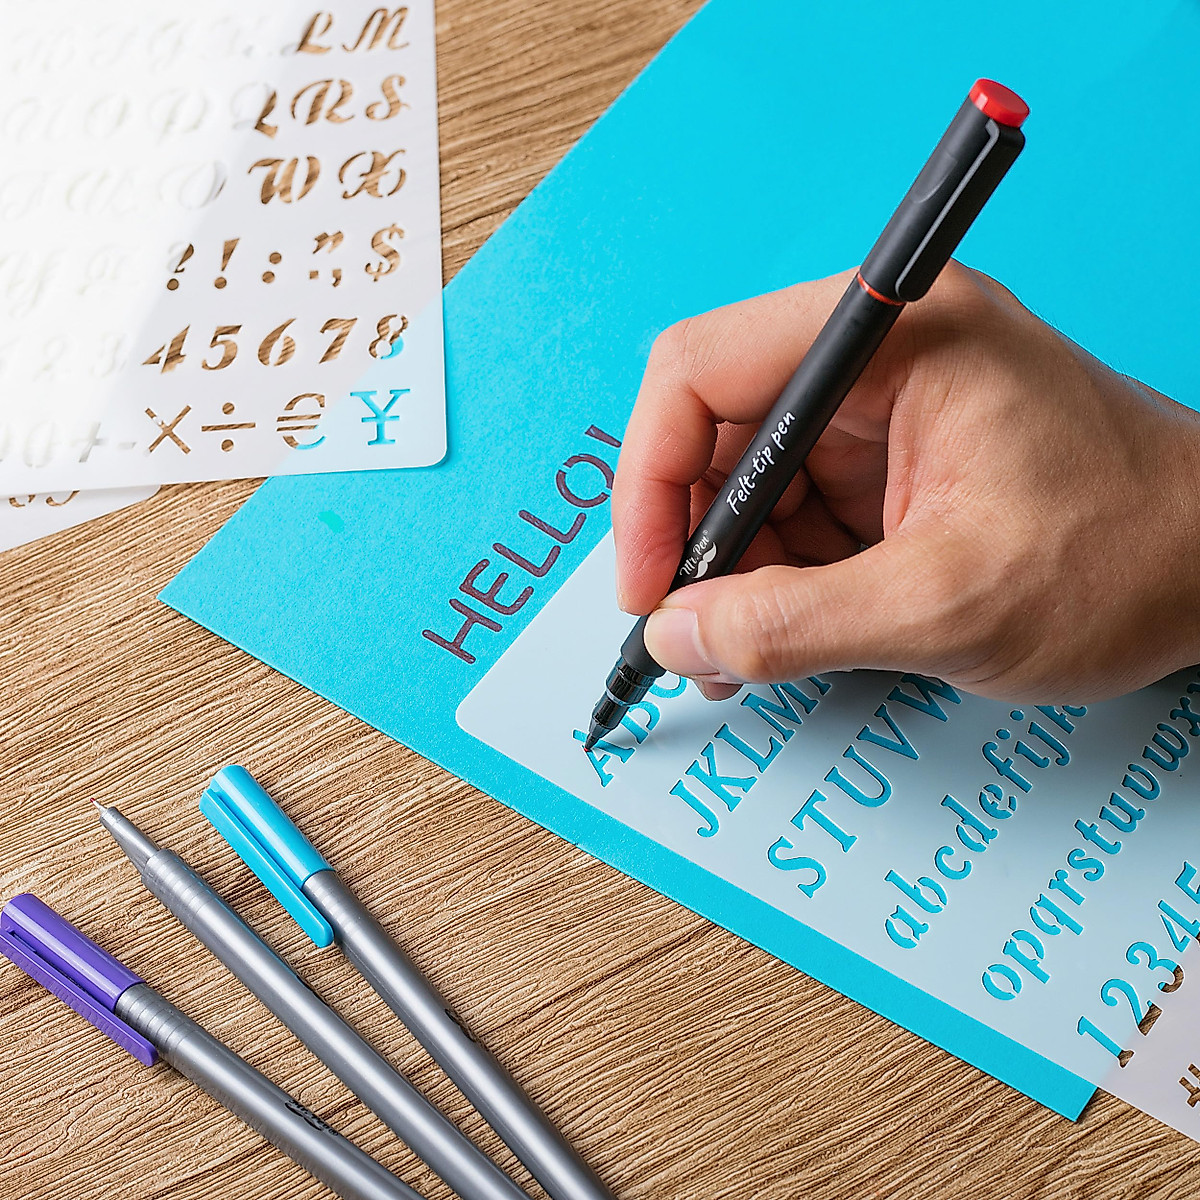 L M
Q R S
W X
? ! : " ; $
4 5 6 7 8
× ÷ € ¥
HELLO!
Felt-tip pen
Mr. Pen®
A B C
JKLM
STUVW
abcdefijk
opqrstuvwx
12345
#